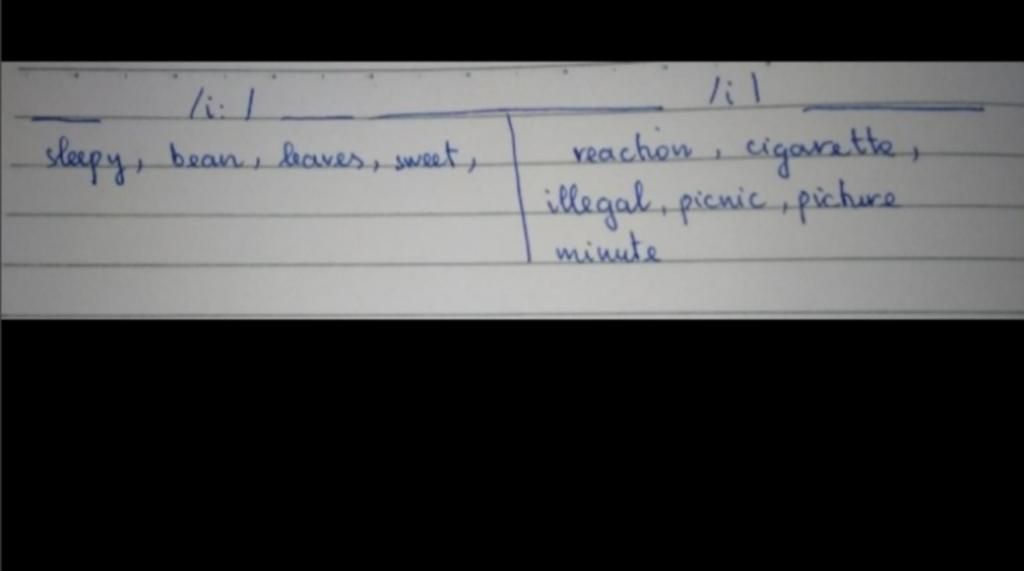 /i: / /i /
sleepy, bean, leaves, sweet, reaction, cigarette,
illegal, picnic, picture
minute